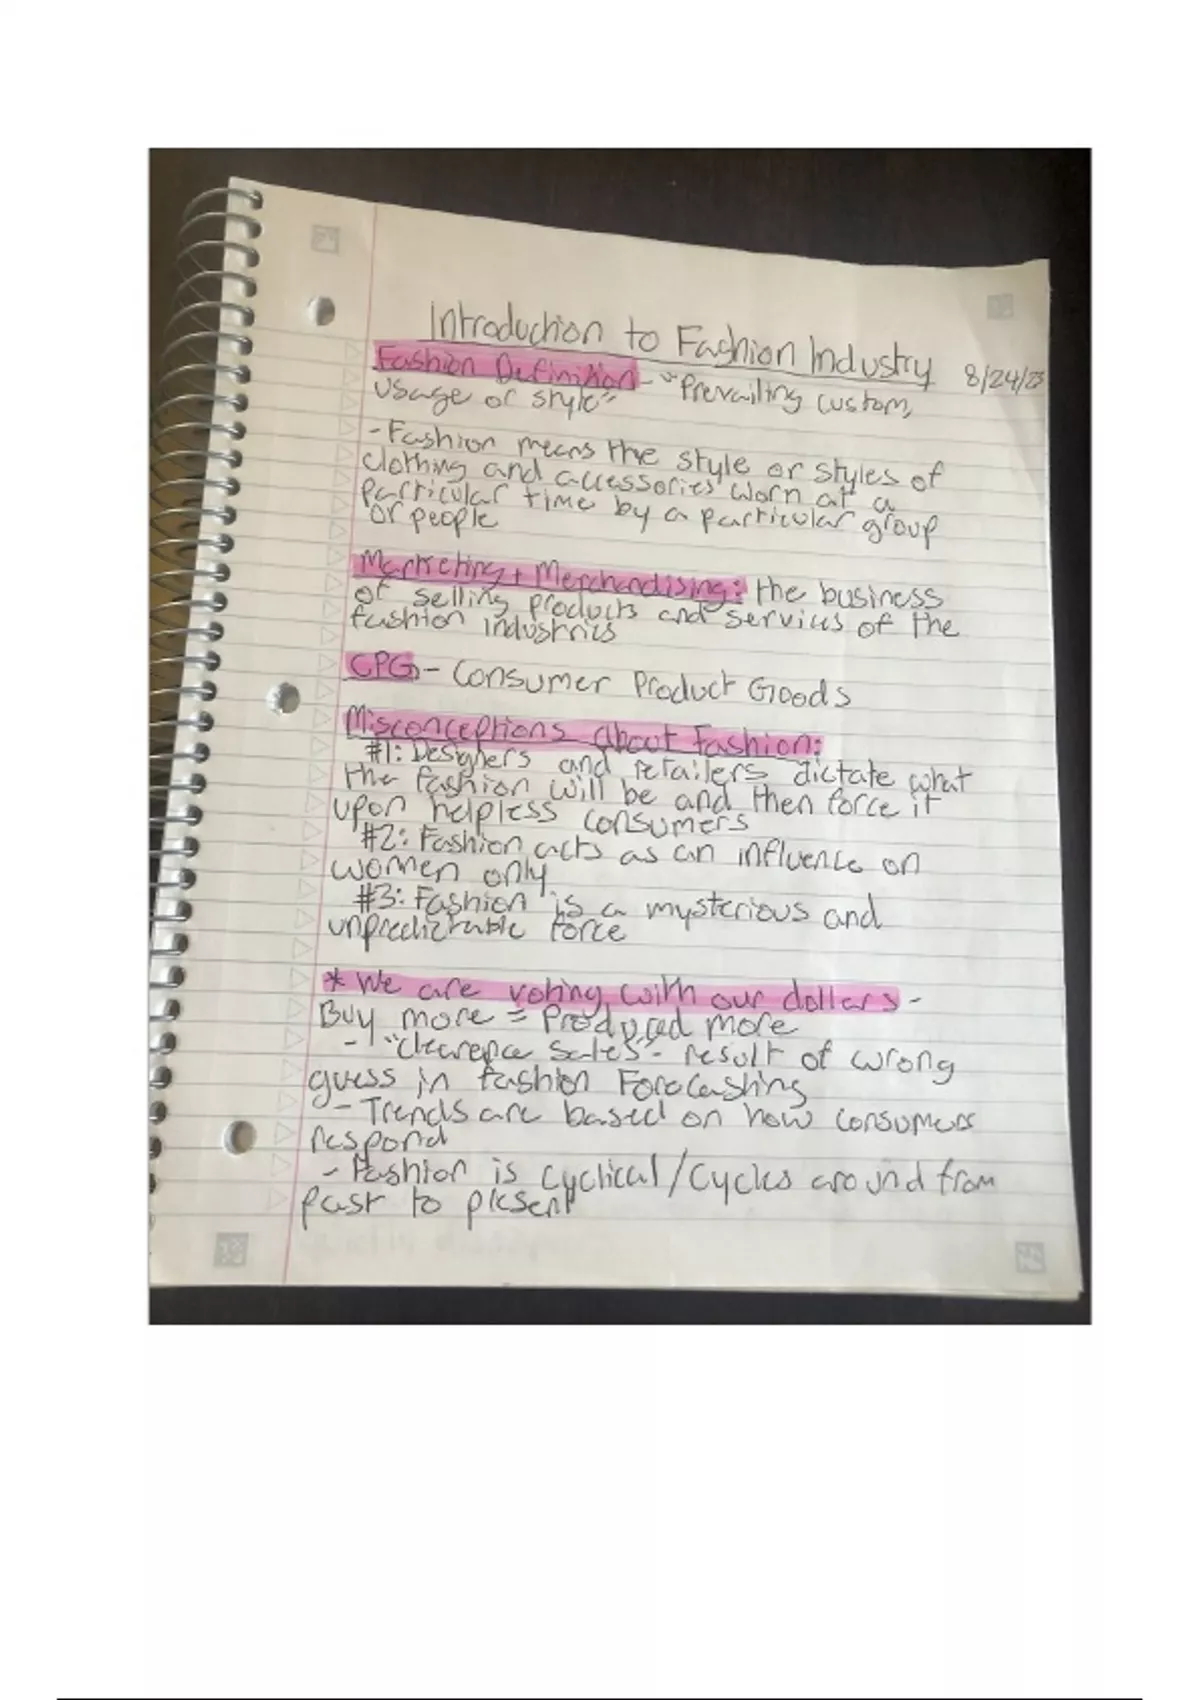 Introduction to Fashion Industry 8/24/23
Fashion Definition - "Prevailing custom,
usage or style"
- Fashion means the style or styles of
clothing and accessories worn at a
particular time by a particular group
or people
Marketing + Merchandising: the business
of selling products and services of the
fashion industries
CPG - Consumer Product Goods
Misconceptions About Fashion:
#1: Designers and retailers dictate what
the fashion will be and then force it
upon helpless consumers
#2: Fashion acts as an influence on
women only
#3: Fashion is a mysterious and
unpredictable force
* We are voting with our dollars -
Buy more = Produced more
- "Clearence Sales" - result of wrong
guess in fashion Forecashing
- Trends are based on how consumers
respond
- Fashion is cyclical/cycles around from
past to present